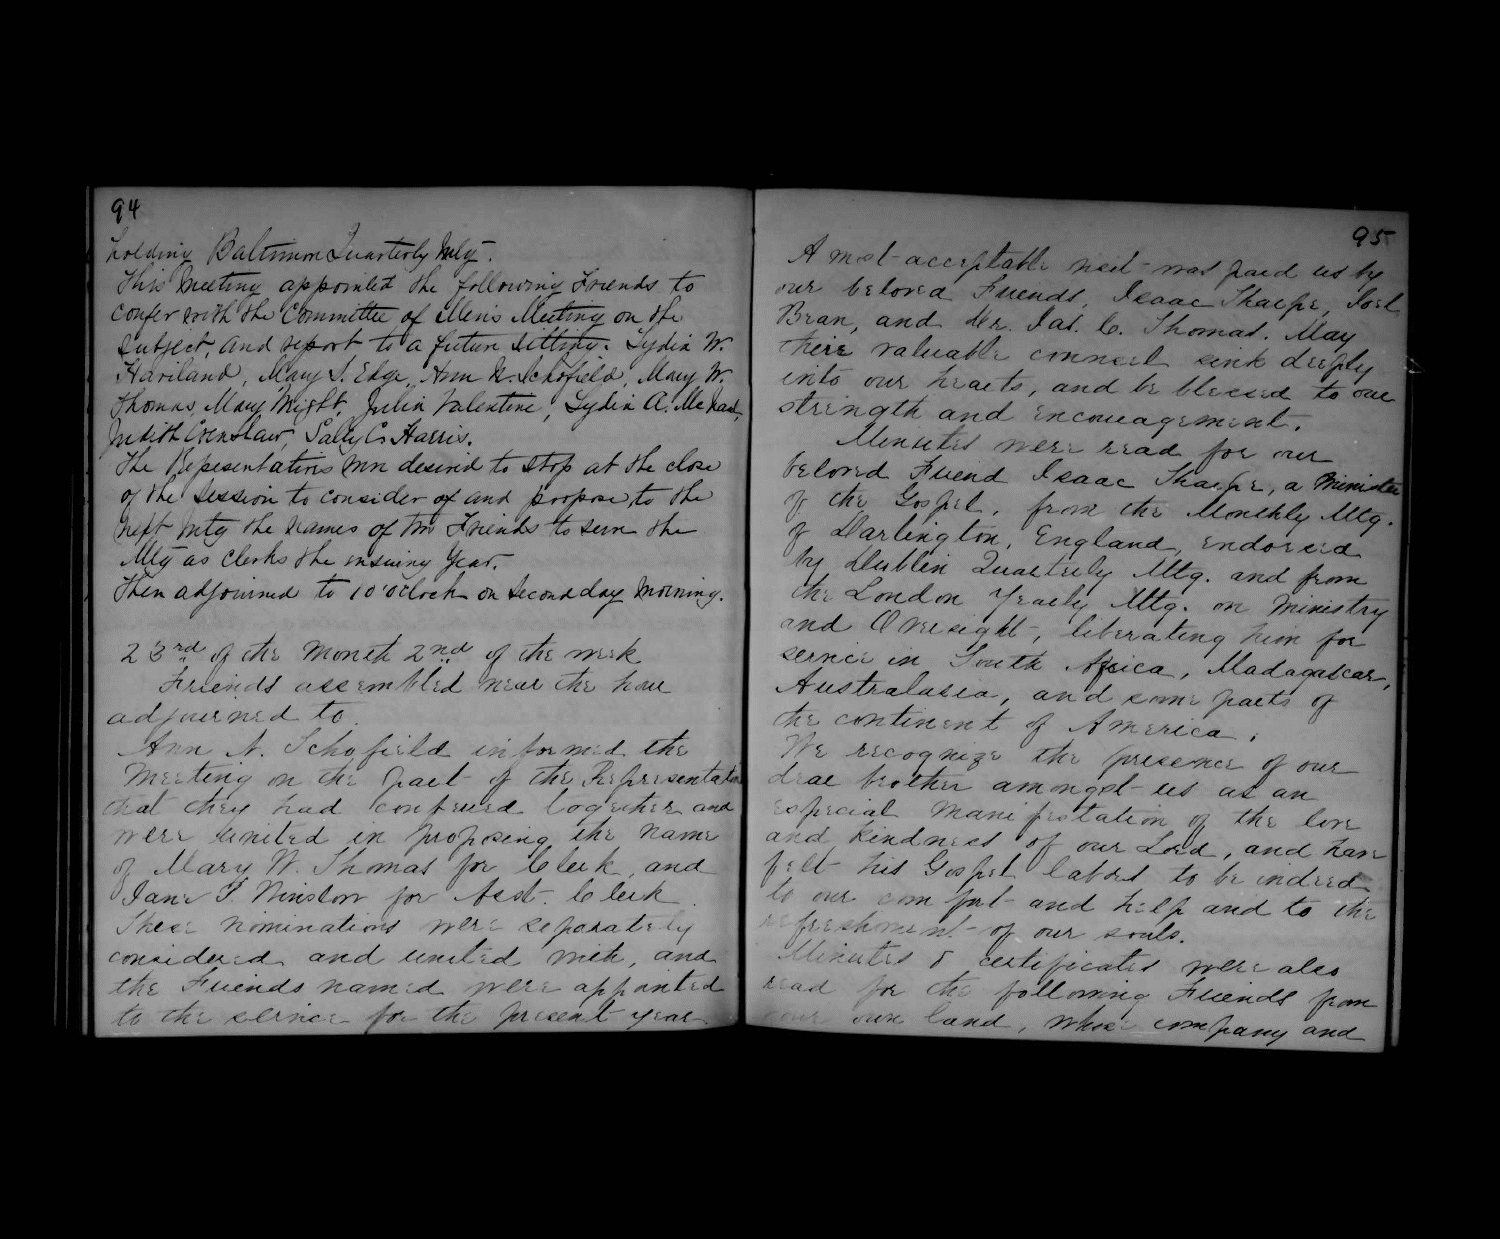 94
holding Baltimore Quarterly Mtg.
This Meeting appointed the following Friends to
confer with the Committee of Men's Meeting on the
subject, and report to a future sitting. Lydia W.
Haviland, Mary S. Edge, Ann N. Schofield, Mary W.
Thomas, Mary Wright, Julia Valentine, Lydia A.
Judith Crenshaw, Sally C. Harris.
The Representatives were desired to stop at the close
of the session to consider of and propose, to the
next Mtg the names of two Friends to serve the
Mtg as clerks the ensuing year.
Then adjourned to 10 o'clock on Second day morning.
23rd of the month 2nd of the week
Friends assembled near the hour
adjourned to.
Ann N. Schofield informed the
Meeting on the part of the Representatives
that they had conferred together and
were united in proposing the name
of Mary W. Thomas for Clerk, and
Jane T. Winslow for Asst. Clerk.
These nominations were separately
considered and united with, and
the Friends named were appointed
to the service for the present year.
95
A most acceptable visit was paid us by
our beloved Friends, Isaac Sharpe, Joel
Bean, and Dr. Jas. C. Thomas. May
their valuable counsel sink deeply
into our hearts, and be blessed to our
strength and encouragement.
Minutes were read for our
beloved Friend Isaac Sharpe, a Minister
of the Gospel, from the Monthly Mtg.
of Darlington, England, endorsed
by Dublin Quarterly Mtg. and from
the London Yearly Mtg. on Ministry
and Oversight, liberating him for
service in South Africa, Madagascar,
Australasia, and some parts of
the continent of America.
We recognize the presence of our
dear brother amongst us as an
especial manifestation of the love
and kindness of our Lord, and have
felt his Gospel labors to be indeed
to our comfort and help and to the
refreshment of our souls.
Minutes & certificates were also
read for the following Friends from
our own land, whose company and